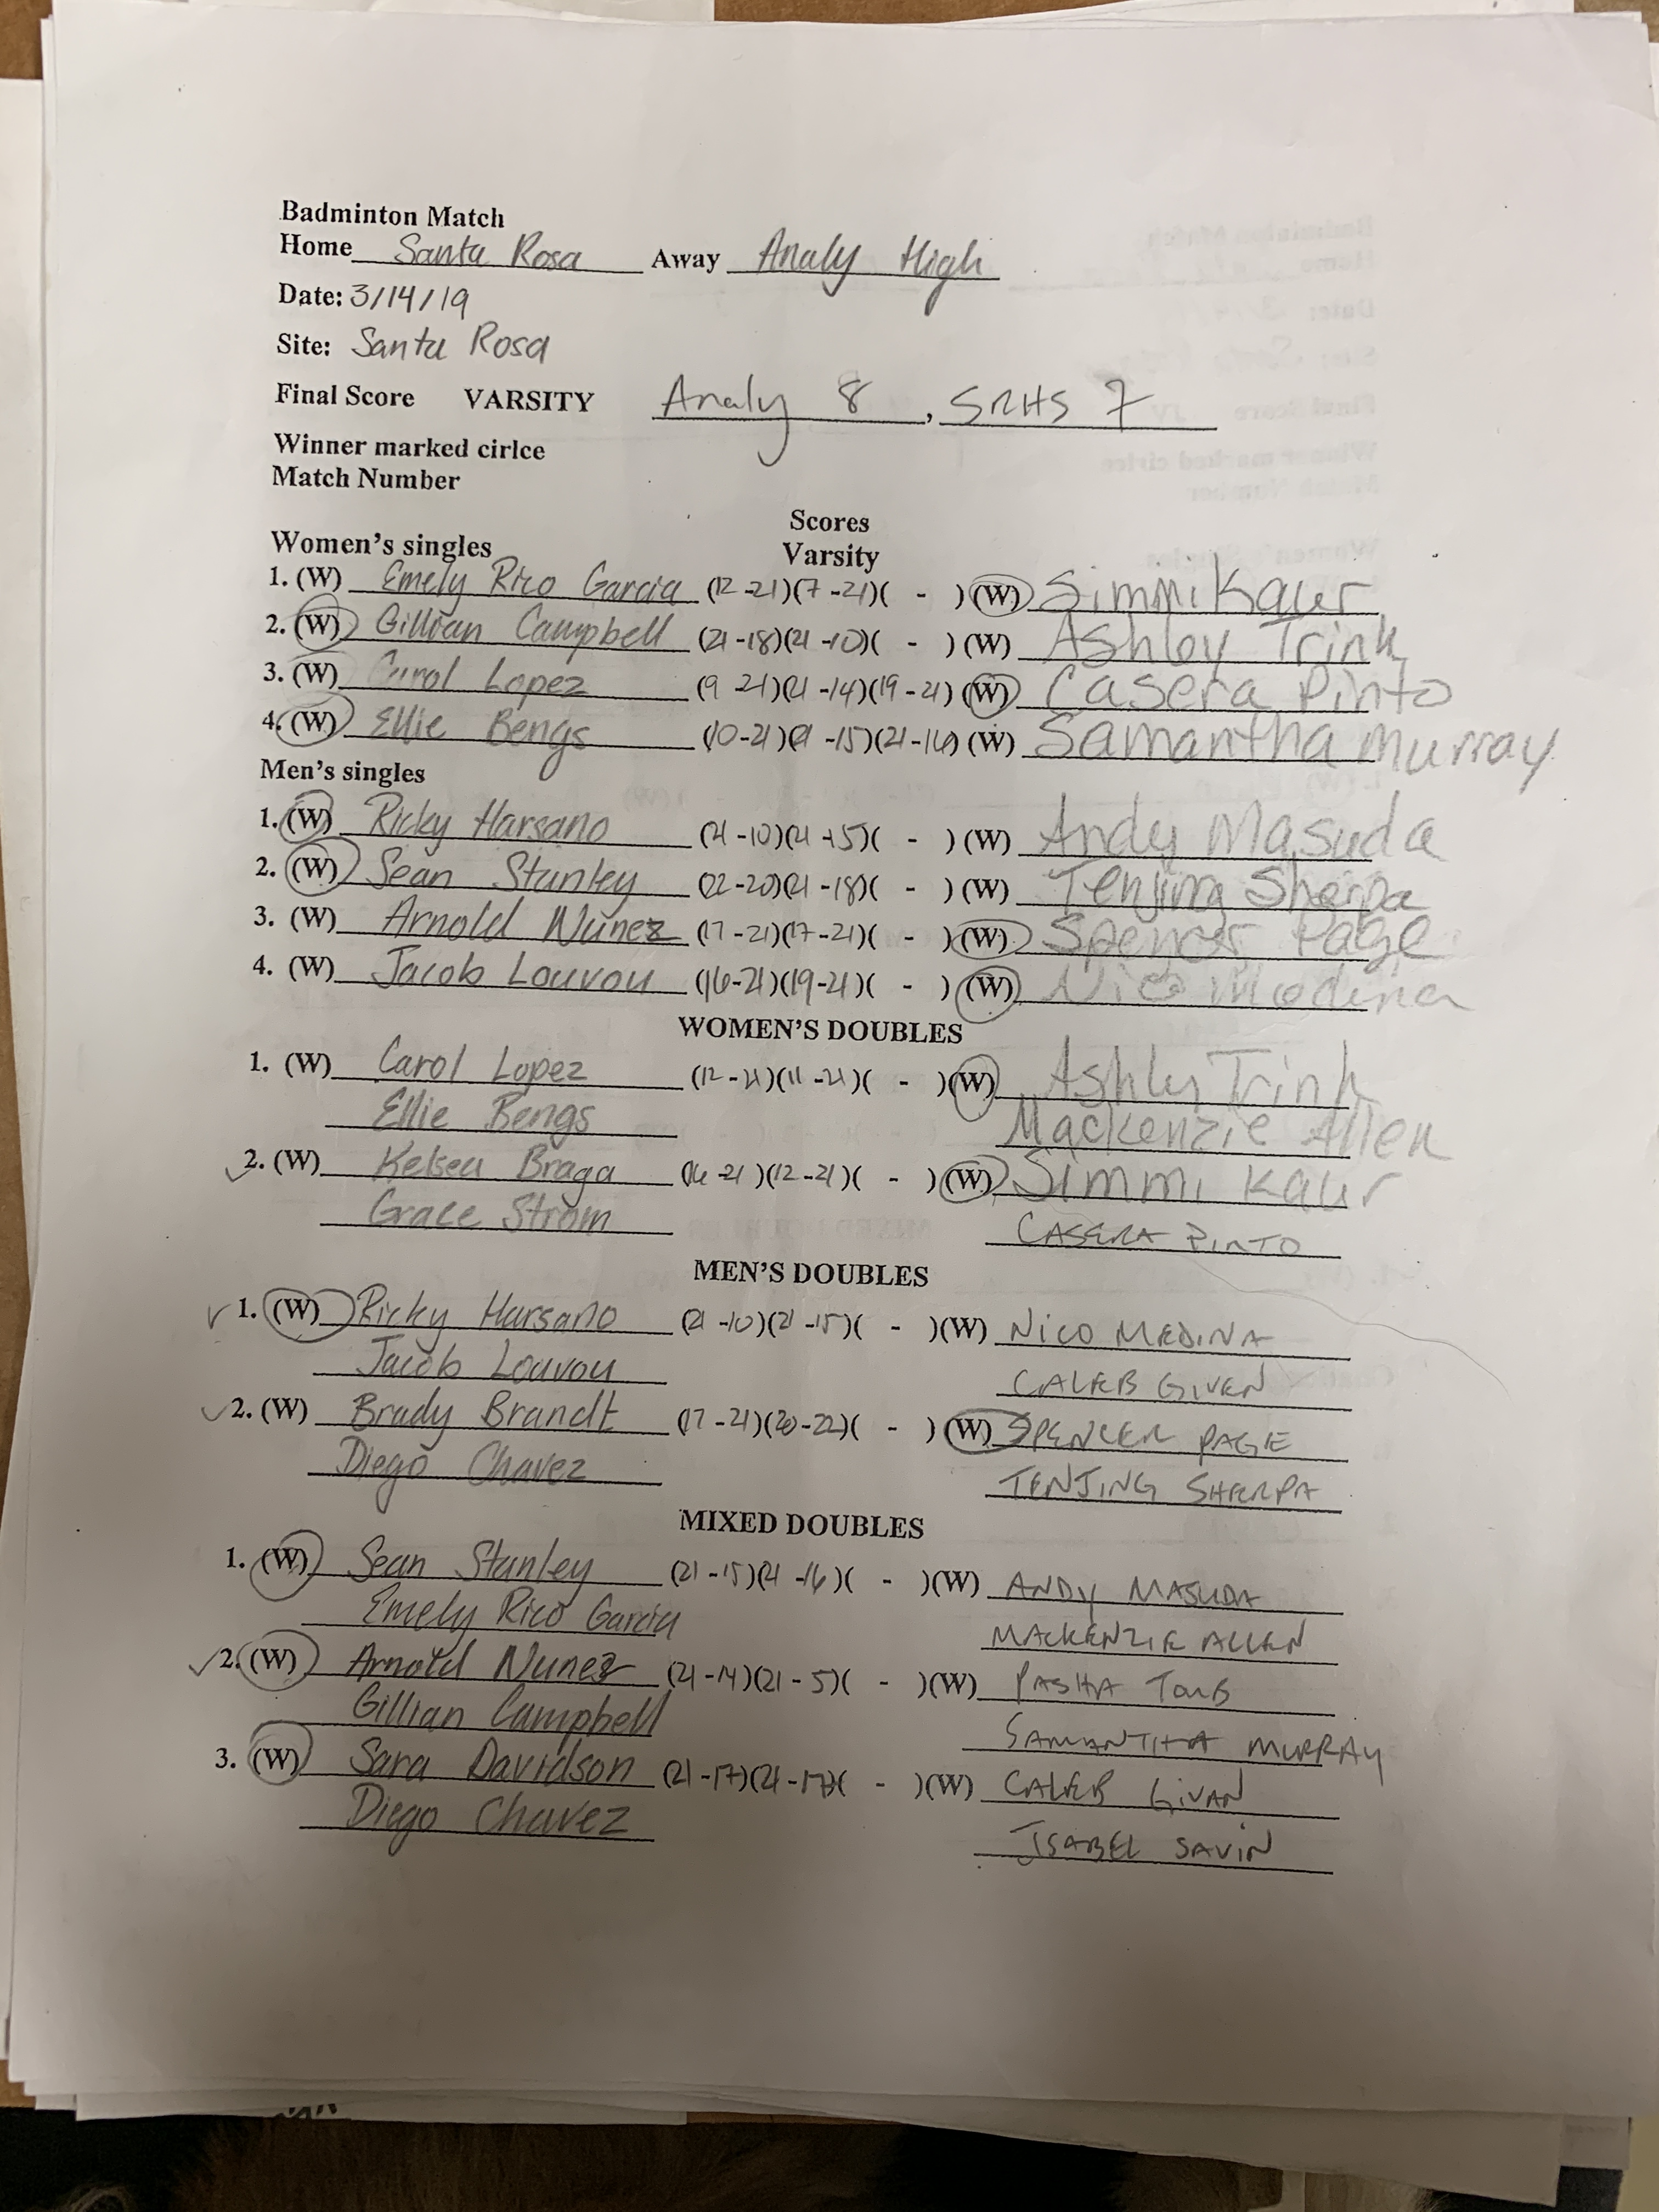 Badminton Match
Home Santa Rosa Away Analy High
Date: 3/14/19
Site: Santa Rosa
Final Score VARSITY Analy 8, SRHS 7
Winner marked cirlce
Match Number
Scores
Women's singles Varsity
1. (W) Emely Rico Garcia (12-21)(7-21)( - )(W) Simmi Kaur
2. (W) Gillian Campbell (21-18)(21-10)( - )(W) Ashley Trinh
3. (W) Carol Lopez (9 21)(21-14)(19-21)(W) Casera Pinto
4. (W) Ellie Bengs (10-21)(21-15)(21-16)(W) Samantha Murray
Men's singles
1. (W) Ricky Harsano (21-10)(21-15)( - )(W) Andy Masuda
2. (W) Sean Stanley (22-20)(21-18)( - )(W) Tenjing Sherpa
3. (W) Arnold Nunez (17-21)(17-21)( - )(W) Spencer Page
4. (W) Jacob Louvou (16-21)(19-21)( - )(W) Nico Medina
WOMEN'S DOUBLES
1. (W) Carol Lopez (12-21)(11-21)( - )(W) Ashley Trinh
Ellie Bengs Mackenzie Allen
2. (W) Kelsea Braga (16-21)(12-21)( - )(W) Simmi Kaur
Grace Strom CASERA PINTO
MEN'S DOUBLES
1. (W) Ricky Harsano (21-10)(21-15)( - )(W) NICO MEDINA
Jacob Louvou CALEB GIVEN
2. (W) Brady Brandt (17-21)(20-22)( - )(W) SPENCER PAGE
Diego Chavez TENJING SHERPA
MIXED DOUBLES
1. (W) Sean Stanley (21-15)(21-16)( - )(W) ANDY MASUDA
Emely Rico Garcia MACKENZIE ALLEN
2. (W) Arnold Nunez (21-14)(21-5)( - )(W) PASHA
Gillian Campbell SAMANTHA MURRAY
3. (W) Sara Davidson (21-17)(21-17)( - )(W) CALEB GIVAN
Diego Chavez ISABEL SAVIN